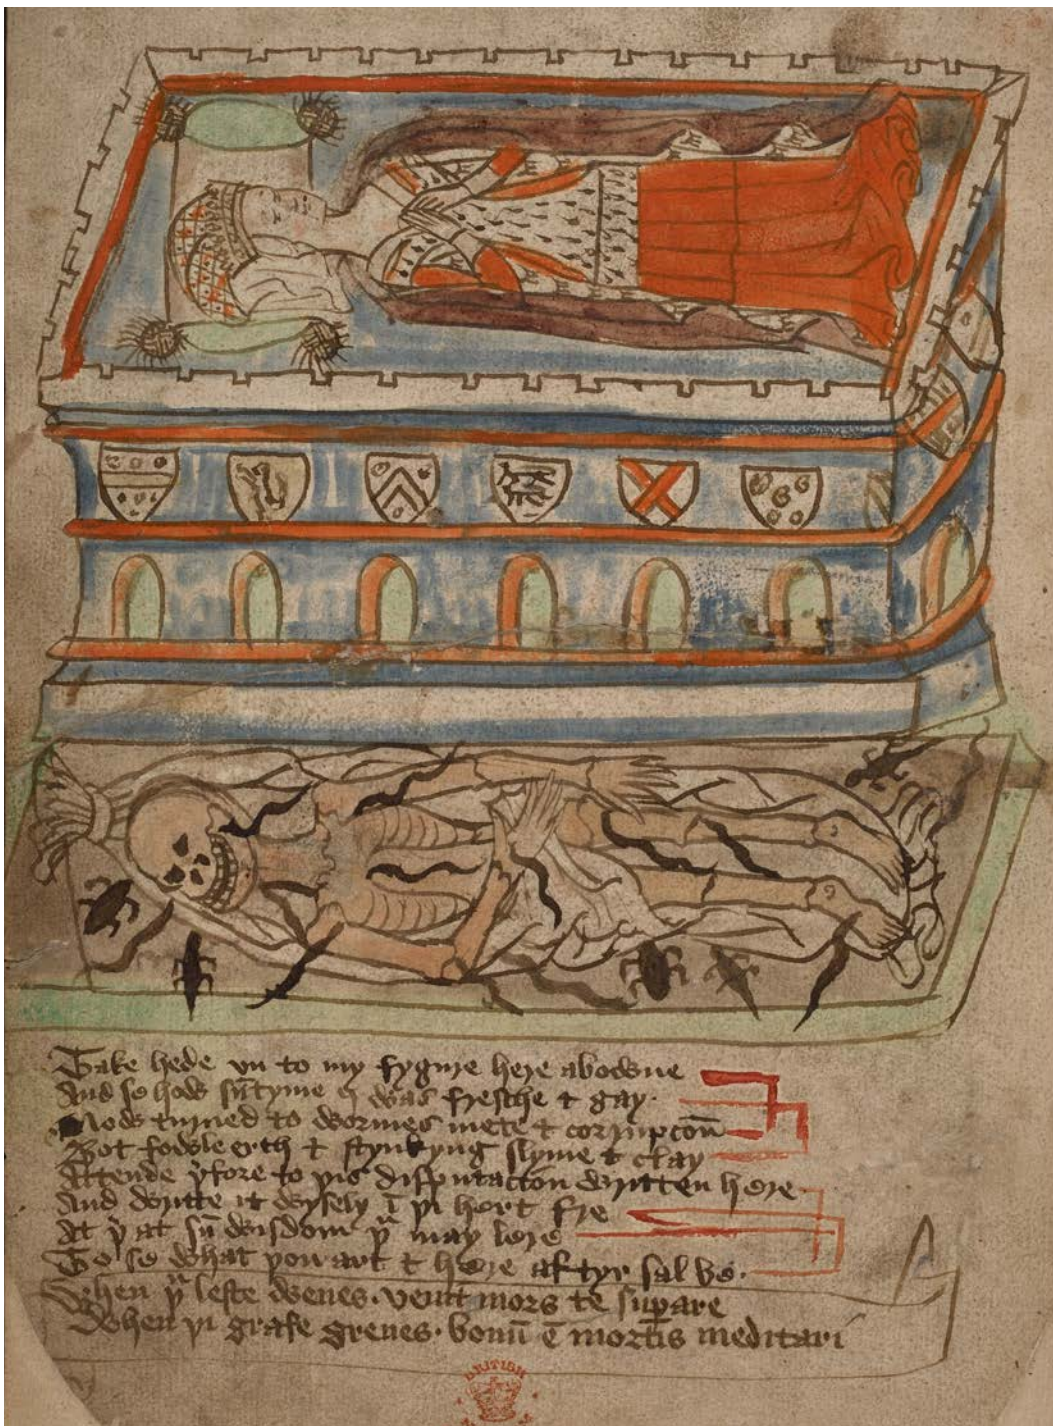 Take hede vn to my fygure here abowne
And se how sũtyme I was fresche & gay·
Now turned to wormes mete & corrupcoñ
Bot fowle erth & stynkyng slyme & clay
Attende þfore to þis disputacioñ written here
And writte it wysely ĩ þi hert fre
At þ at sũ wisdom þᵘ may lere
To se what þou art & here aftyr sal be·
When þᵘ leste wenes· venit mors te supare
When þi grafe greues· bonũ ẽ mortis meditari
BRITISH